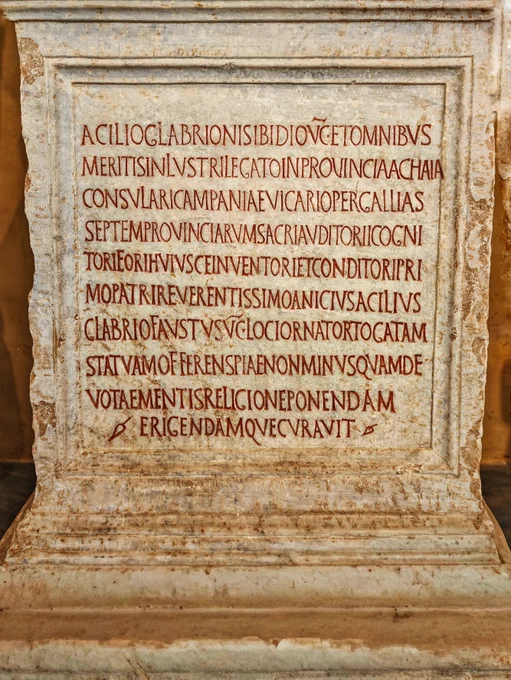 ACILIOGLABRIONISIBIDIOV̅C̅ETOMNIBVS
MERITISINLVSTRILEGATOINPROVINCIAACHAIA
CONSVLARICAMPANIAEVICARIOPERGALLIAS
SEPTEMPROVINCIARVMSACRIAVDITORIICOGNI
TORIFORIHVIVSCEINVENTORIETCONDITORIPRI
MOPATRIREVERENTISSIMOANICIVSACILIVS
GLABRIOFAVSTVSV̅C̅LOCIORNATORTOGATAM
STATVAMOFFERENSPIAENONMINVSQVAMDE
VOTAEMENTISRELIGIONEPONENDAM
ERIGENDAMQVECVRAVIT